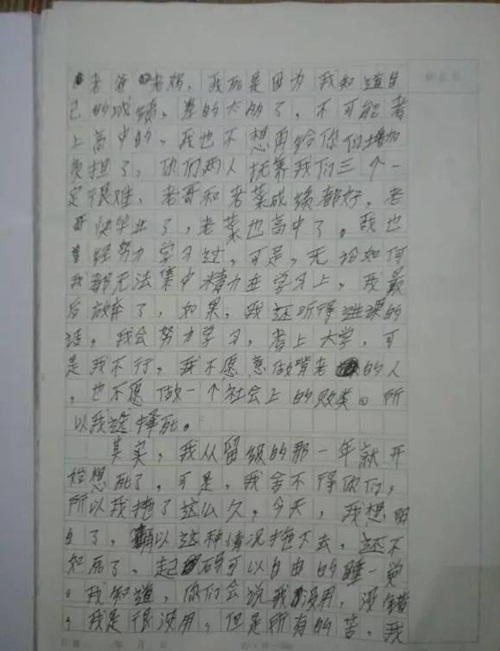 老爸老妈，我死是因为我知道自
己的成绩，差的太多了，不可能考
上高中的，我也不想再给你们增加
负担了，你们两人抚养我们三个一
定很难，老哥和老菜成绩都好，老
哥快毕业了，老菜也高中了。我也
曾经努力学习过，可是，无论如何
我都无法集中精力在学习上，我最
后放弃了，如果，我还听得进课的
话，我会努力学习，考上大学，可
是我不行，我不愿意做啃老的人
，也不愿做一个社会上的败类。所
以我选择死。
其实，我从留级的那一年就开
始想死了，可是，我舍不得你们，
所以我拖了这么久，今天，我想明
白了，以这种情况拖下去，还不
如死了，起码可以自由的睡一觉
。我知道，你们会说我没用，没错
，我是很没用，但是所有的苦，我